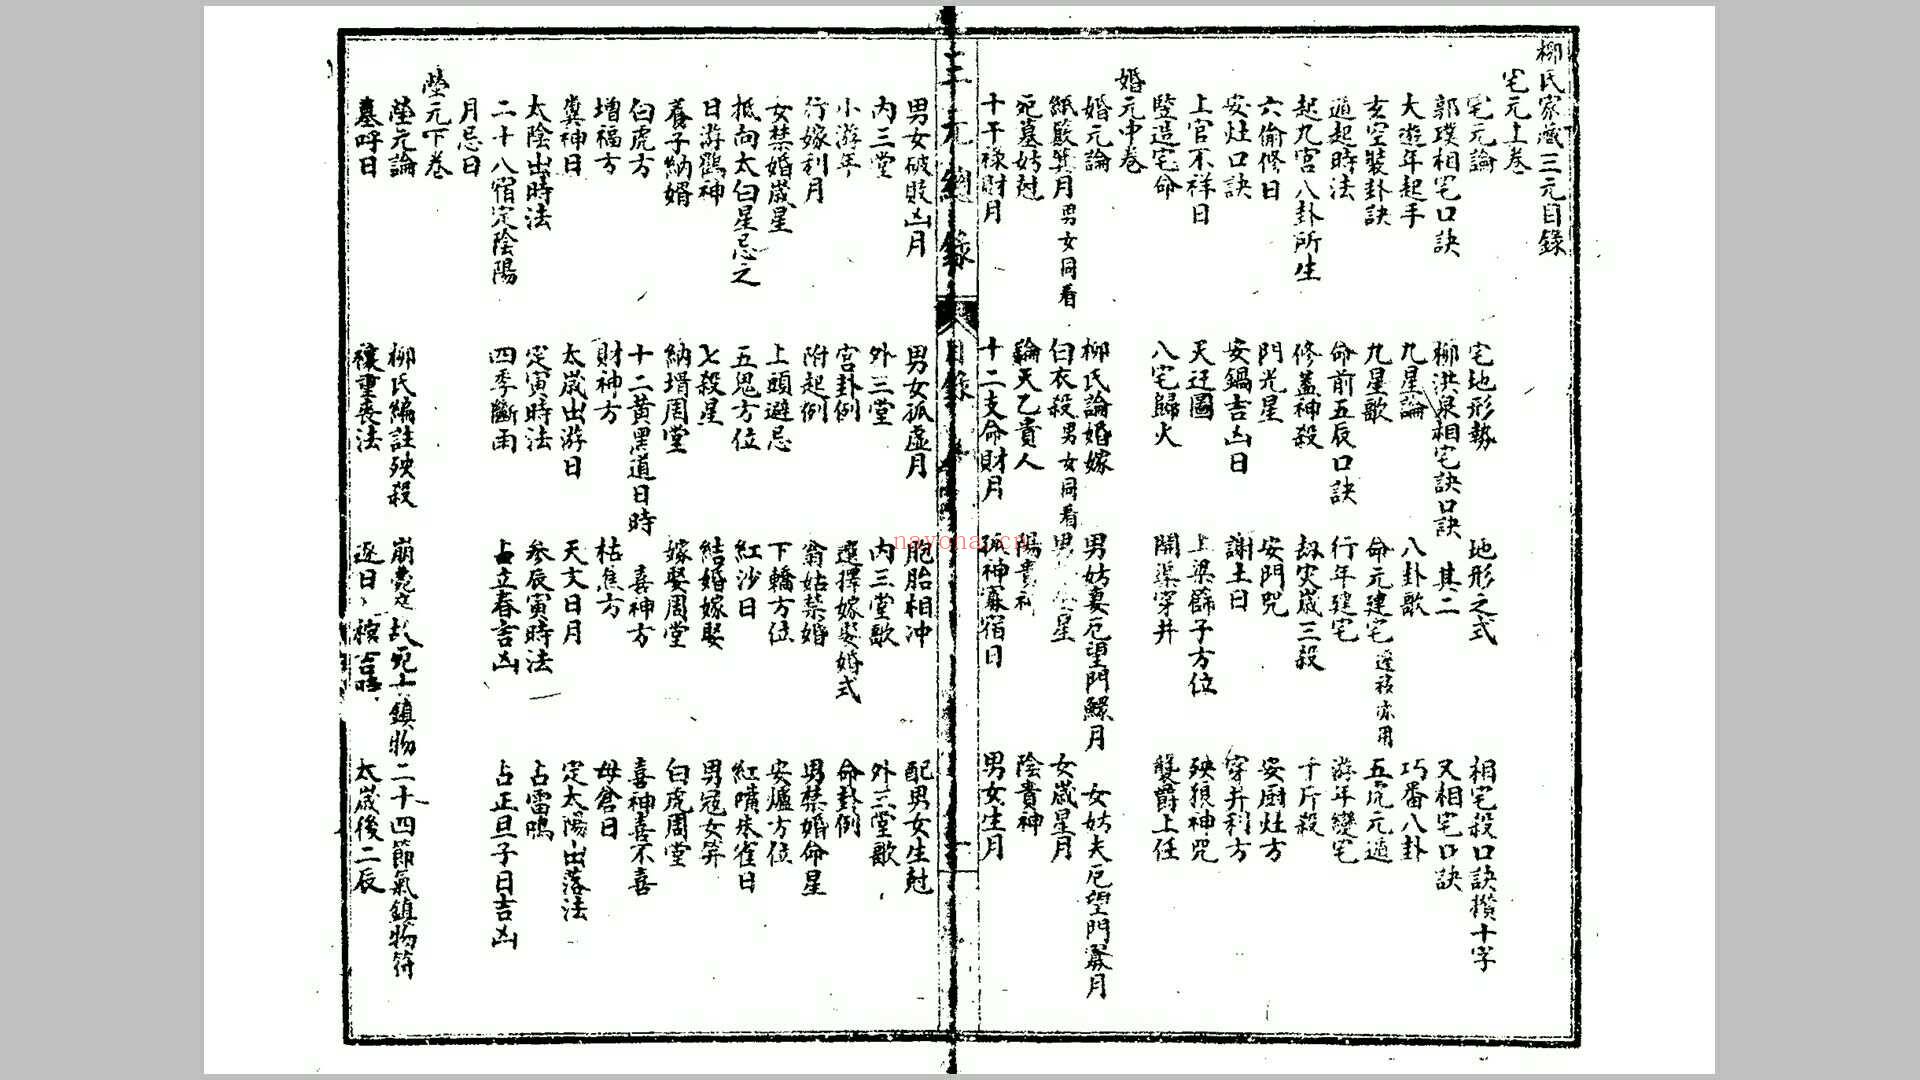 柳氏家藏三元目錄
宅元上卷
宅元論 宅地形勢 地形之式 相宅殺口訣攢十字
郭璞相宅口訣 柳洪泉相宅訣口訣 其二 又相宅口訣
大遊年起手 九星論 八卦歌 巧番八卦
玄空裝卦訣 九星歌 命元建宅 遷移亦用 五虎元遁
遁起時法 命前五辰口訣 行年建宅 游年變宅
起九宮八卦所生 修蓋神殺 劫灾歲三殺 千斤殺
六偷修日 門光星 安門咒 安厨灶方
安灶口訣 安鍋吉凶日 謝土日 穿井利方
上官不祥日 天迁圖 上梁篩子方位 殃狽神咒
豎造宅命 八宅歸火 開渠穿井 襲爵上任
婚元中卷
婚元論 柳氏論婚嫁 男妨妻厄望門鰥月 女妨夫厄望門寡月
紙籨箕月 男女同看 白衣殺 男女同看 男 星 女歲星月
死墓妨尅 論天乙貴人 陽貴神 陰貴神
十干祿財月 十二支命財月 孤神寡宿日 男女生月
三元總錄 目錄
男女破敗凶月 男女孤虛月 胞胎相冲 配男女生尅
內三堂 外三堂 內三堂歌 外三堂歌
小游年 宮卦例 選擇嫁娶婚式 命卦例
行嫁利月 附起例 翁姑禁婚 男禁婚命星
女禁婚歲星 上頭避忌 下轎方位 安爐方位
抵向太白星忌之 五鬼方位 紅沙日 紅嘴朱雀日
日游鶴神 七殺星 結婚嫁娶 男冠女笄
養子納婿 納壻周堂 嫁娶周堂 白虎周堂
白虎方 十二黃黑道日時 喜神方 喜神喜不喜
增福方 財神方 枯焦方 母倉日
糞神日 太歲出游日 天文日月 定太陽出落法
太陰出時法 定寅時法 参辰寅時法 占雷鳴
二十八宿定陰陽 四季斷雨 占立春吉凶 占正旦子日吉凶
月忌日
塋元下卷
塋元論 柳氏編註殃殺 崩薨 故死 鎮物 二十四節氣鎮物符
墓呼日 禳重喪法 逐日 太歲後二辰
nayona.cn